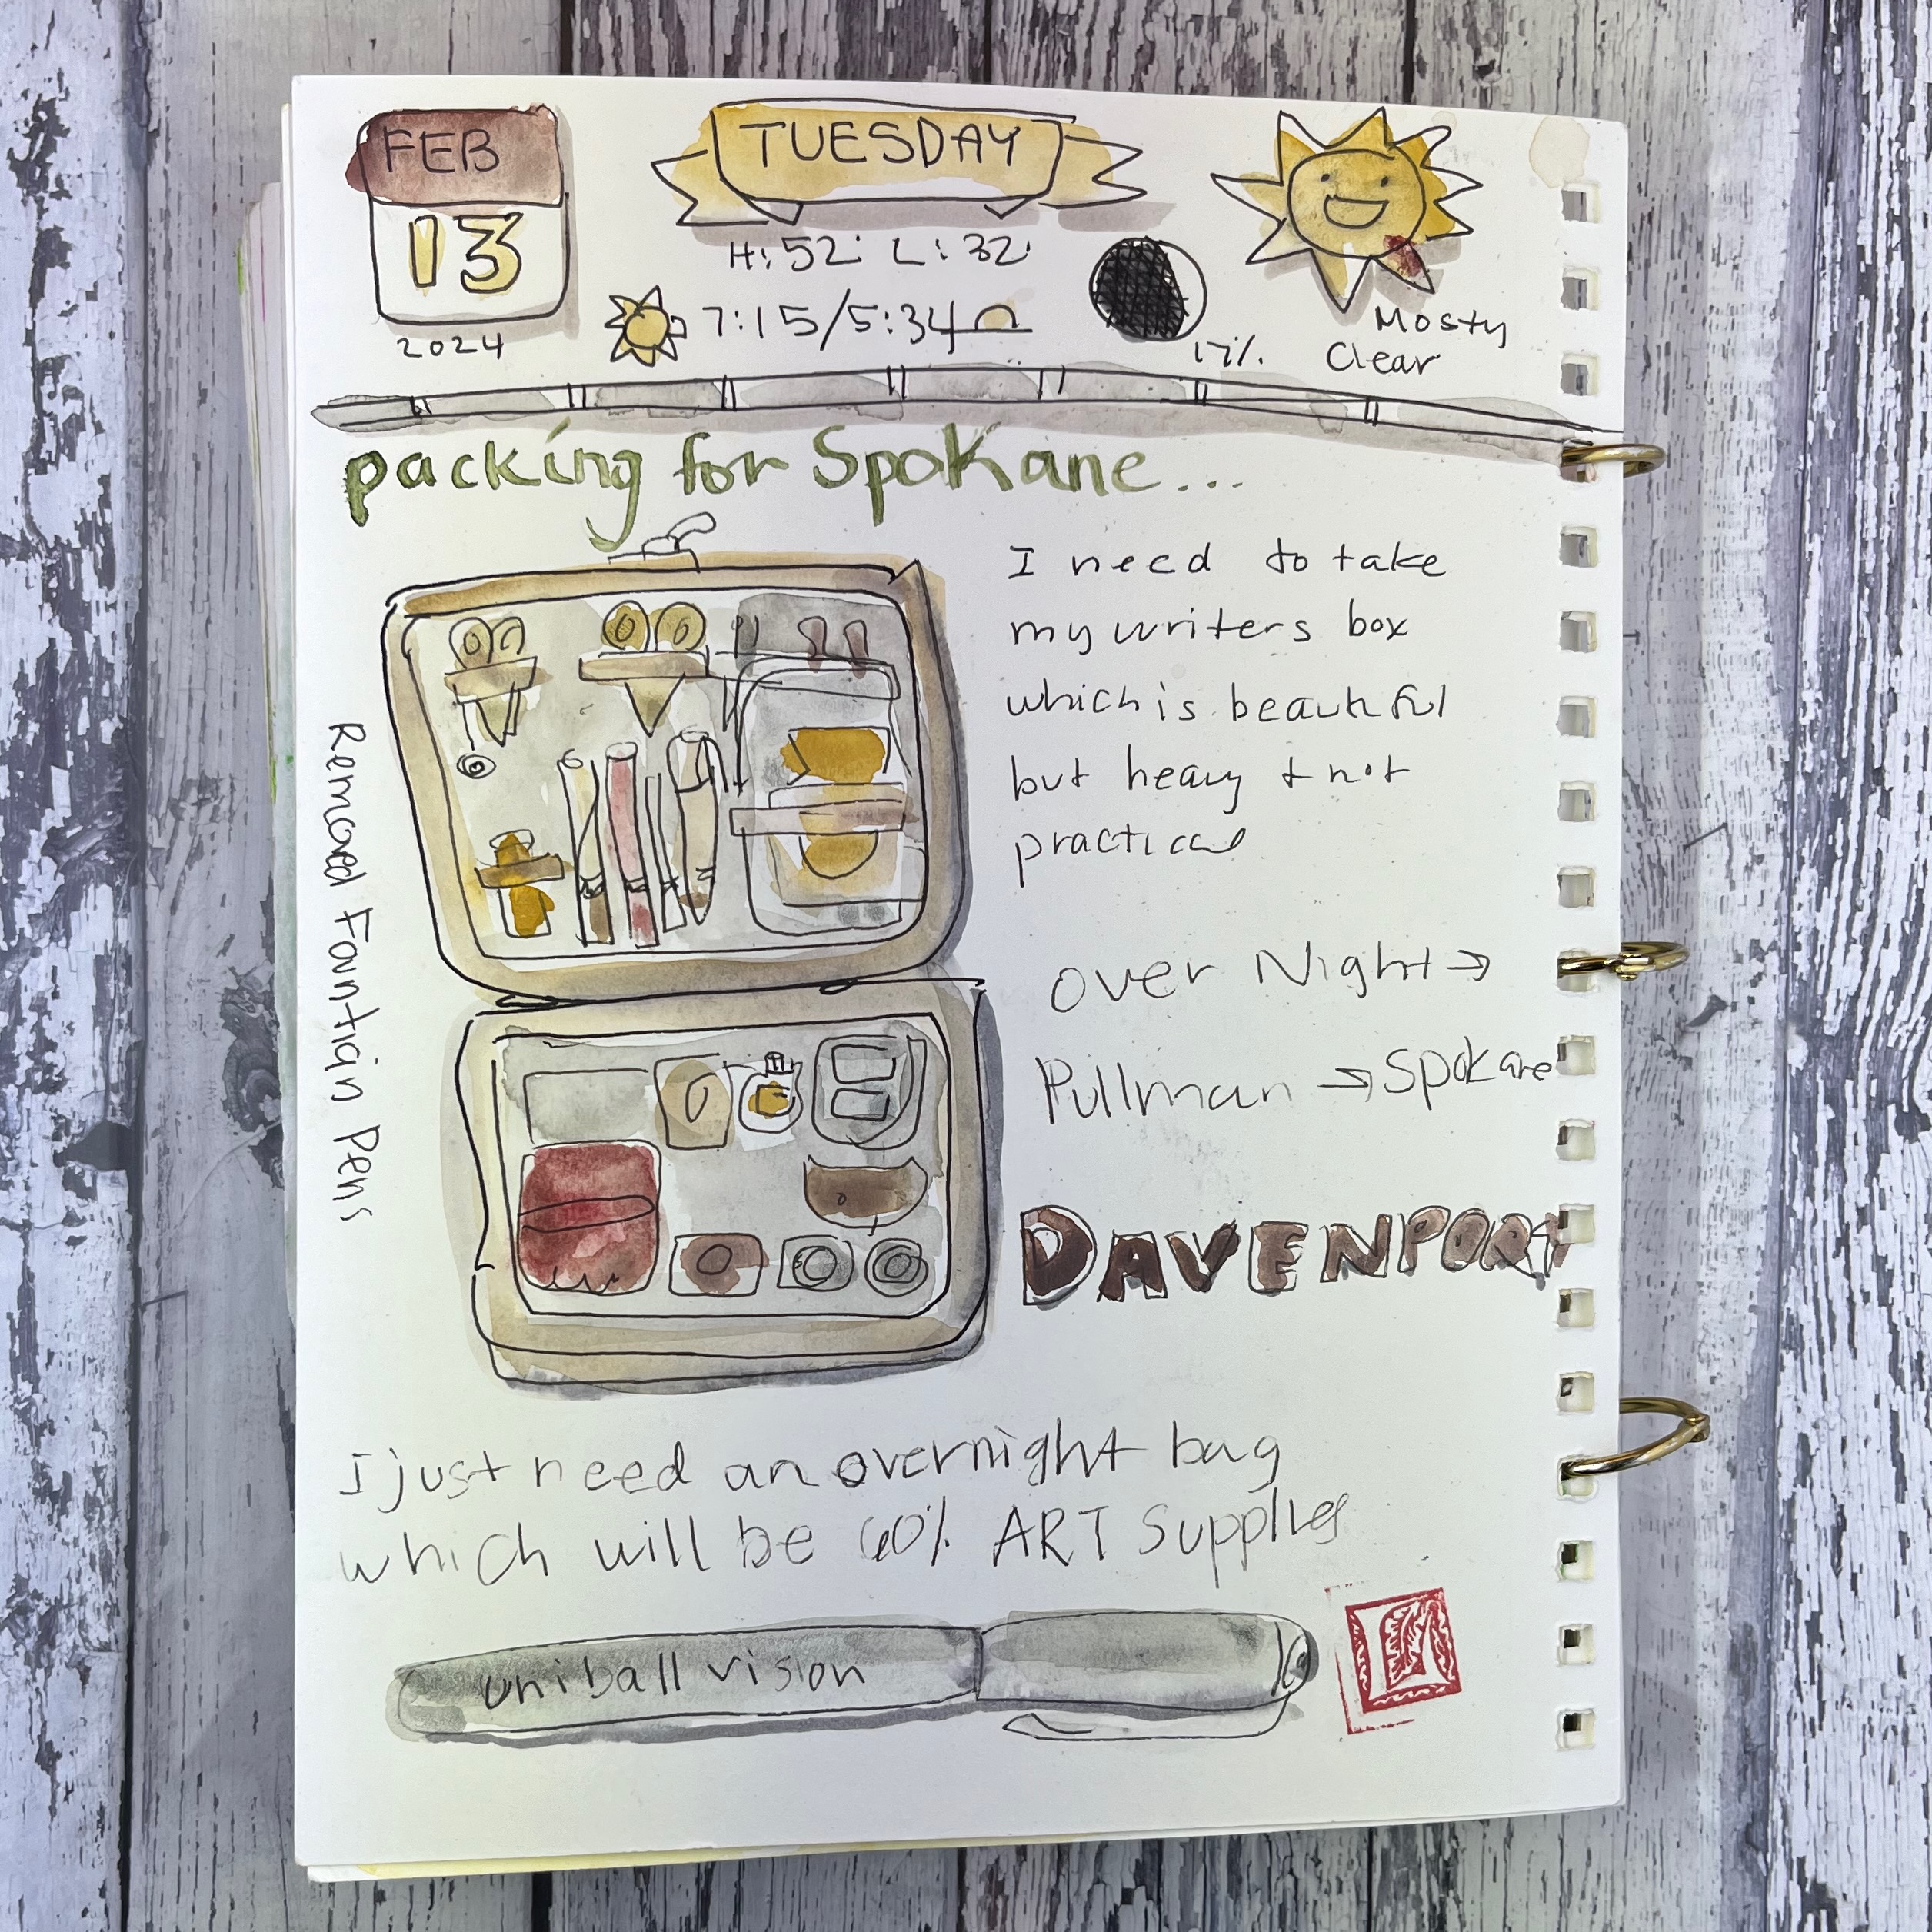 FEB
13
2024
TUESDAY
H: 52° L: 32°
7:15/5:34
17%
Mosty
Clear
packing for Spokane...
I need to take
my writers box
which is beautiful
but heavy + not
practical
Removed Fountain Pens
Over Night →
Pullman → Spokane
DAVENPORT
I just need an overnight bag
which will be 60% ART Supplies
uniball vision